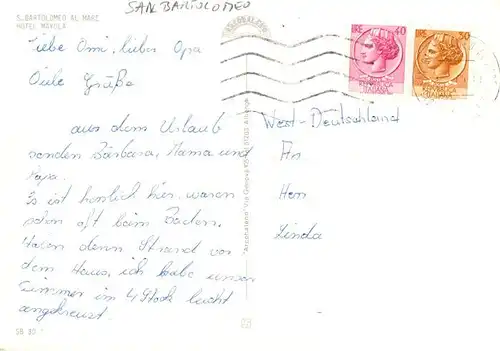 SAN BARTOLOMEO
S. BARTOLOMEO AL MARE
HOTEL MAYOLA
Liebe Omi, lieber Opa
Viele Grüße
aus dem Urlaub
senden Barbara, Mama und
Papa.
Es ist herrlich hier, waren
schon oft beim Baden.
Haben denn Strand vor
dem Haus, ich habe unser
Zimmer im 4 Stock leicht
angekreuzt.
SB 30
LIRE 40
REPUBBLICA
ITALIANA
LIRE 30
REPUBBLICA
ITALIANA
West-Deutschland
An
Herr
Linda